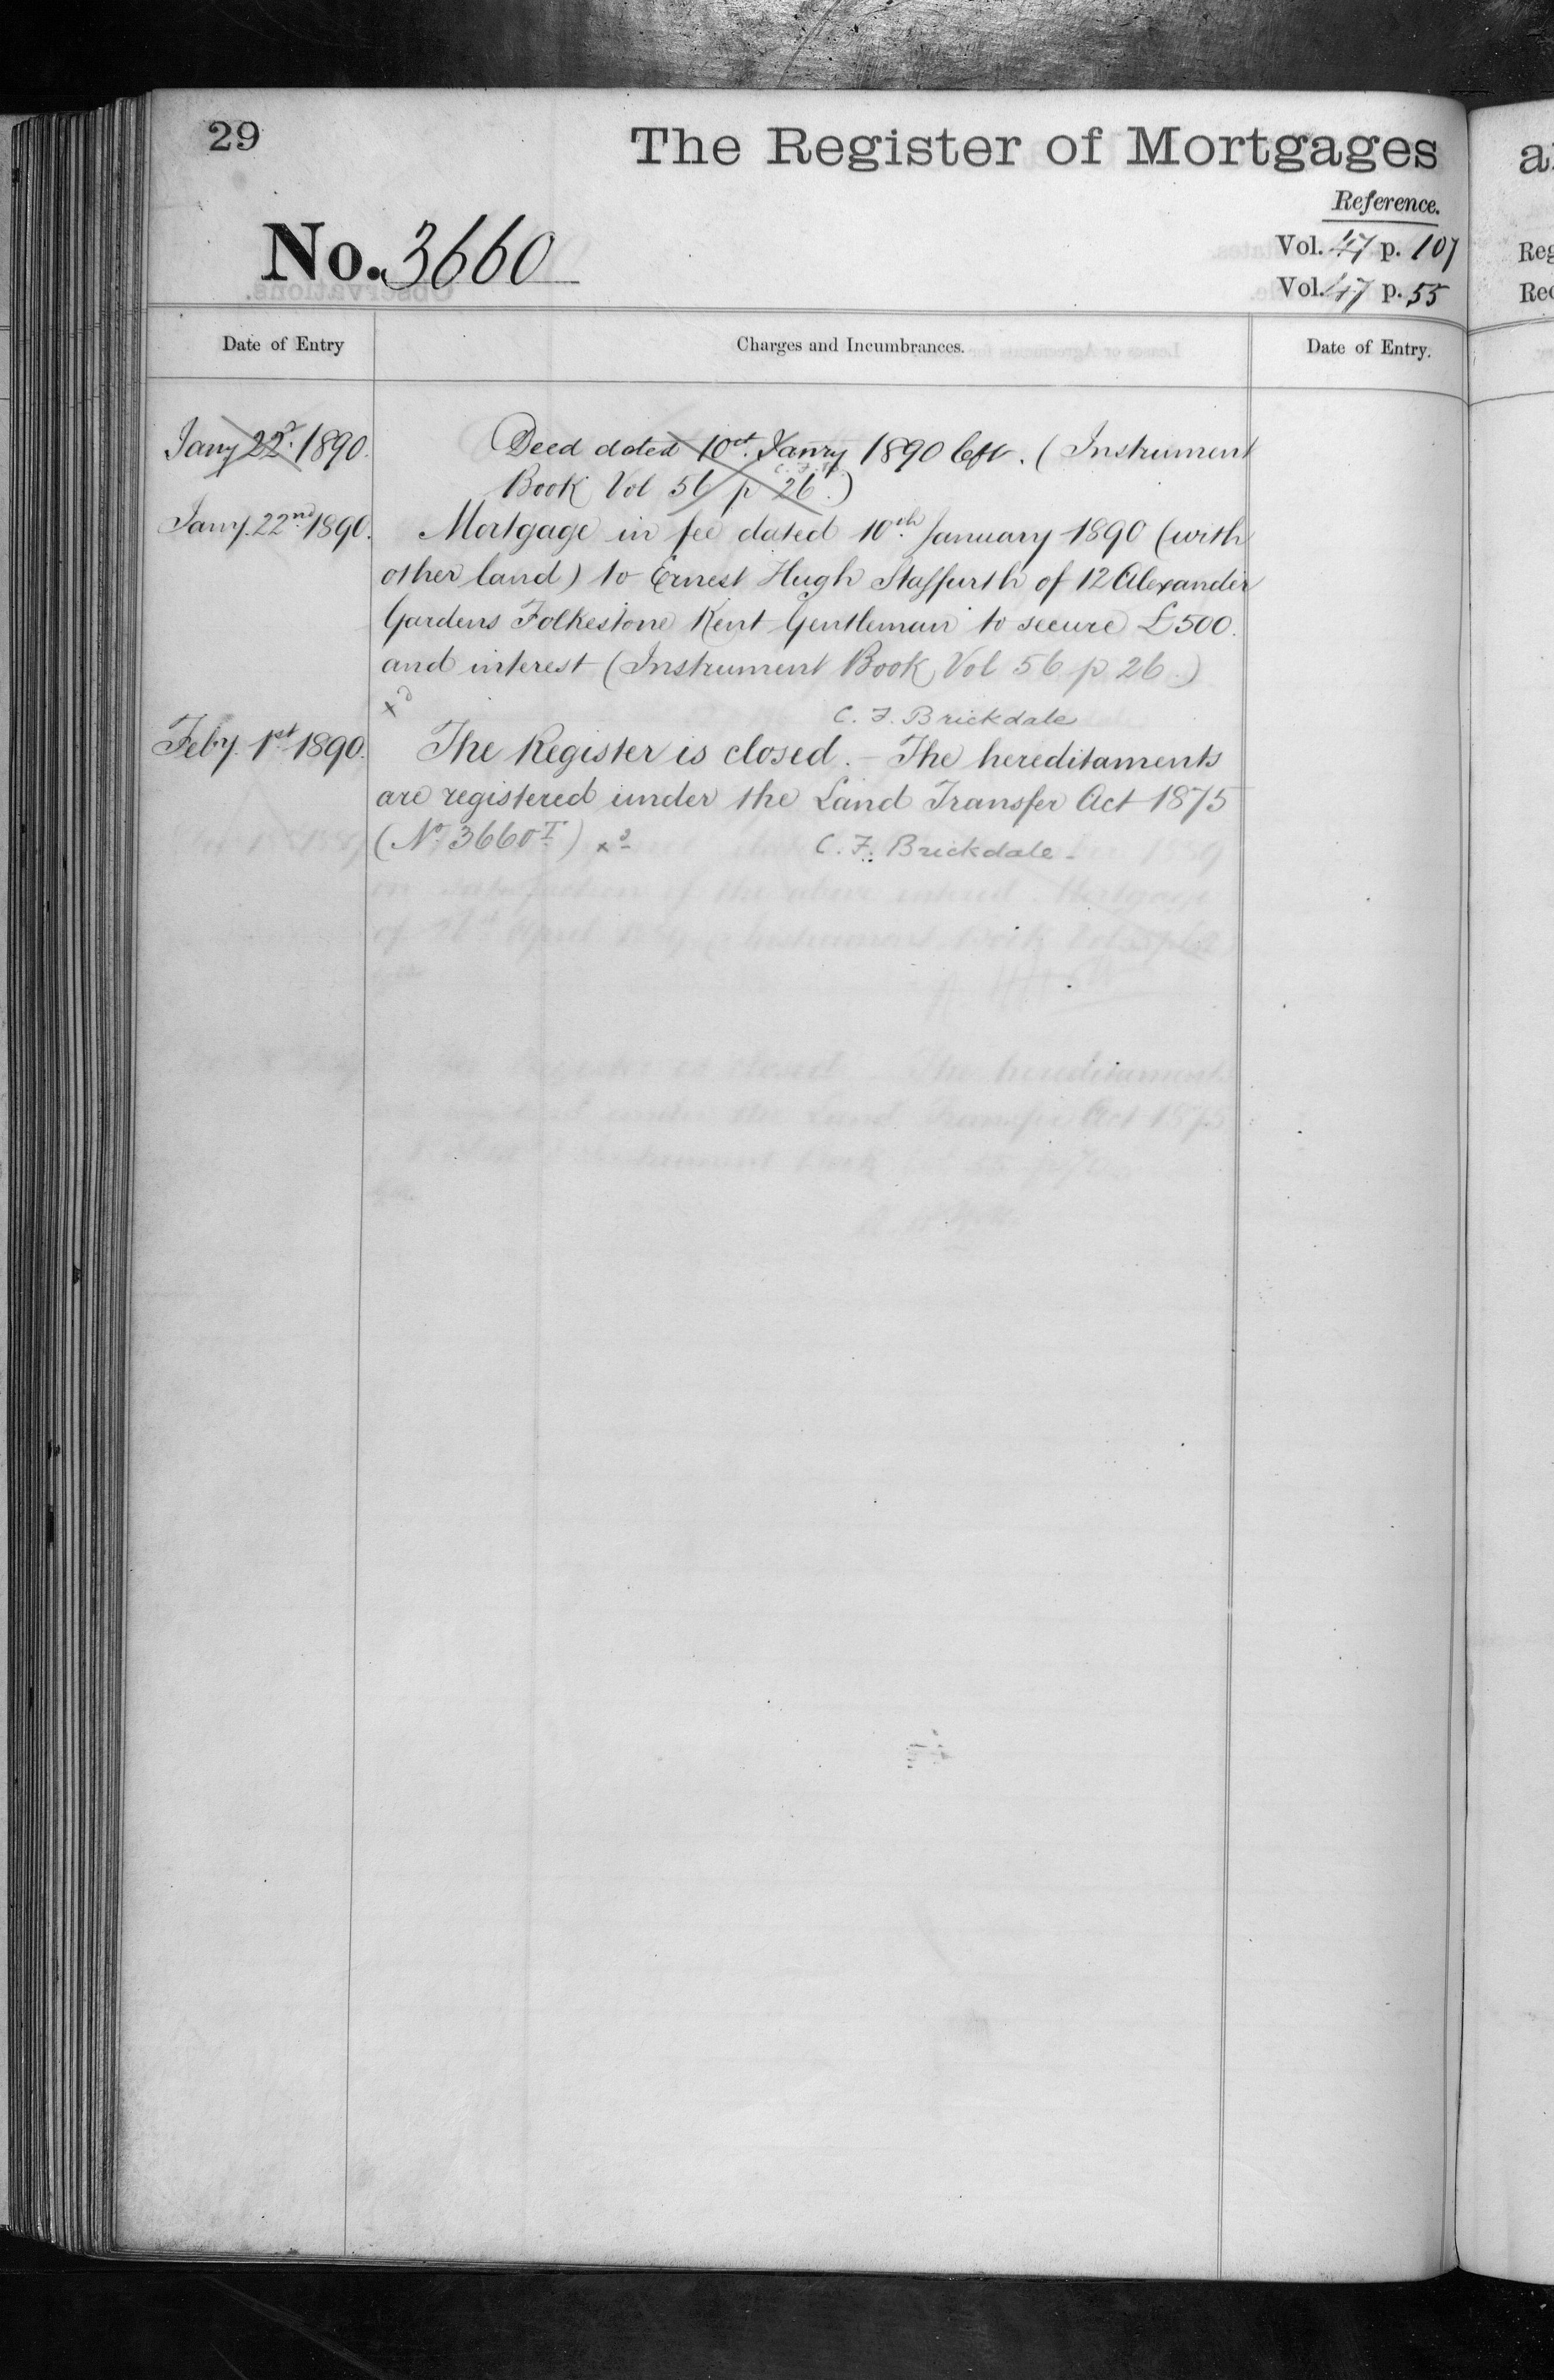 29
The Register of Mortgages
Reference.
No. 3660
Vol. 47 p. 107
Vol. 47 p. 55
Date of Entry
Charges and Incumbrances.
Date of Entry.
Jany 22d. 1890.
Deed dated 10th. Janry 1890 left. (Instrument
Book Vol 56 p 26.)
Jany. 22nd 1890.
Mortgage in fee dated 10th. January 1890 (with
other land) to Ernest Hugh Staffurth of 12 Alexander
Gardens Folkestone Kent Gentleman to secure £500.
and interest (Instrument Book Vol 56 p 26.)
xd
C. F. Brickdale
Feby. 1st 1890.
The Register is closed. - The hereditaments
are registered under the Land Transfer Act 1875
(No. 3660 I) xd
C. F. Brickdale
a
Reg
Rec